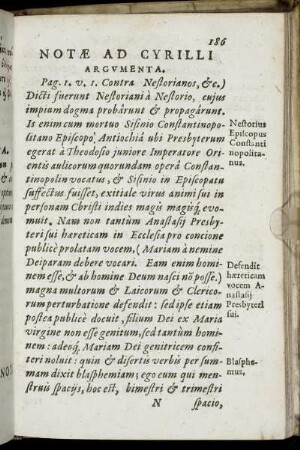 186
NOTÆ AD CYRILLI
ARGVMENTA.
Pag. 1. v. 1. Contra Nestorianos, &c.)
Dicti fuerunt Nestoriani à Nestorio, cujus
impium dogma probârunt & propagârunt.
Is enim cum mortuo Sisinio Constantinopo-
litano Episcopo, Antiochiâ ubi Presbyterum
egerat à Theodosio juniore Imperatore Ori-
entis aulicorum quorundam operâ Constan-
tinopolin vocatus, & Sisinio in Episcopatu
suffectus fuisset, exitiale virus animi sui in
personam Christi indies magis magisq́; evo-
muit. Nam non tantùm Anastasij Presby-
teri sui hæreticam in Ecclesia pro concione
publicè prolatam vocem, (Mariam à nemine
Deiparam debere vocari. Eam enim homi-
nem esse, & ab homine Deum nasci nō posse.)
magna multorum & Laicorum & Clerico-
rum perturbatione defendit: sed ipse etiam
postea publicè docuit, filium Dei ex Maria
virgine non esse genitum, sed tantùm homi-
nem: adeoq́; Mariam Dei genitricem confi-
teri noluit: quin & disertis verbis per sum-
mam dixit blasphemiam; ego eum qui men-
struis spacijs, hoc est, bimestri & trimestri
N spacio,
Nestorius
Episcopus
Constanti
nopolita-
nus.
Defendit
hæreticam
vocem A-
nastasij
Presbyteri
sui.
Blasphe-
mus.